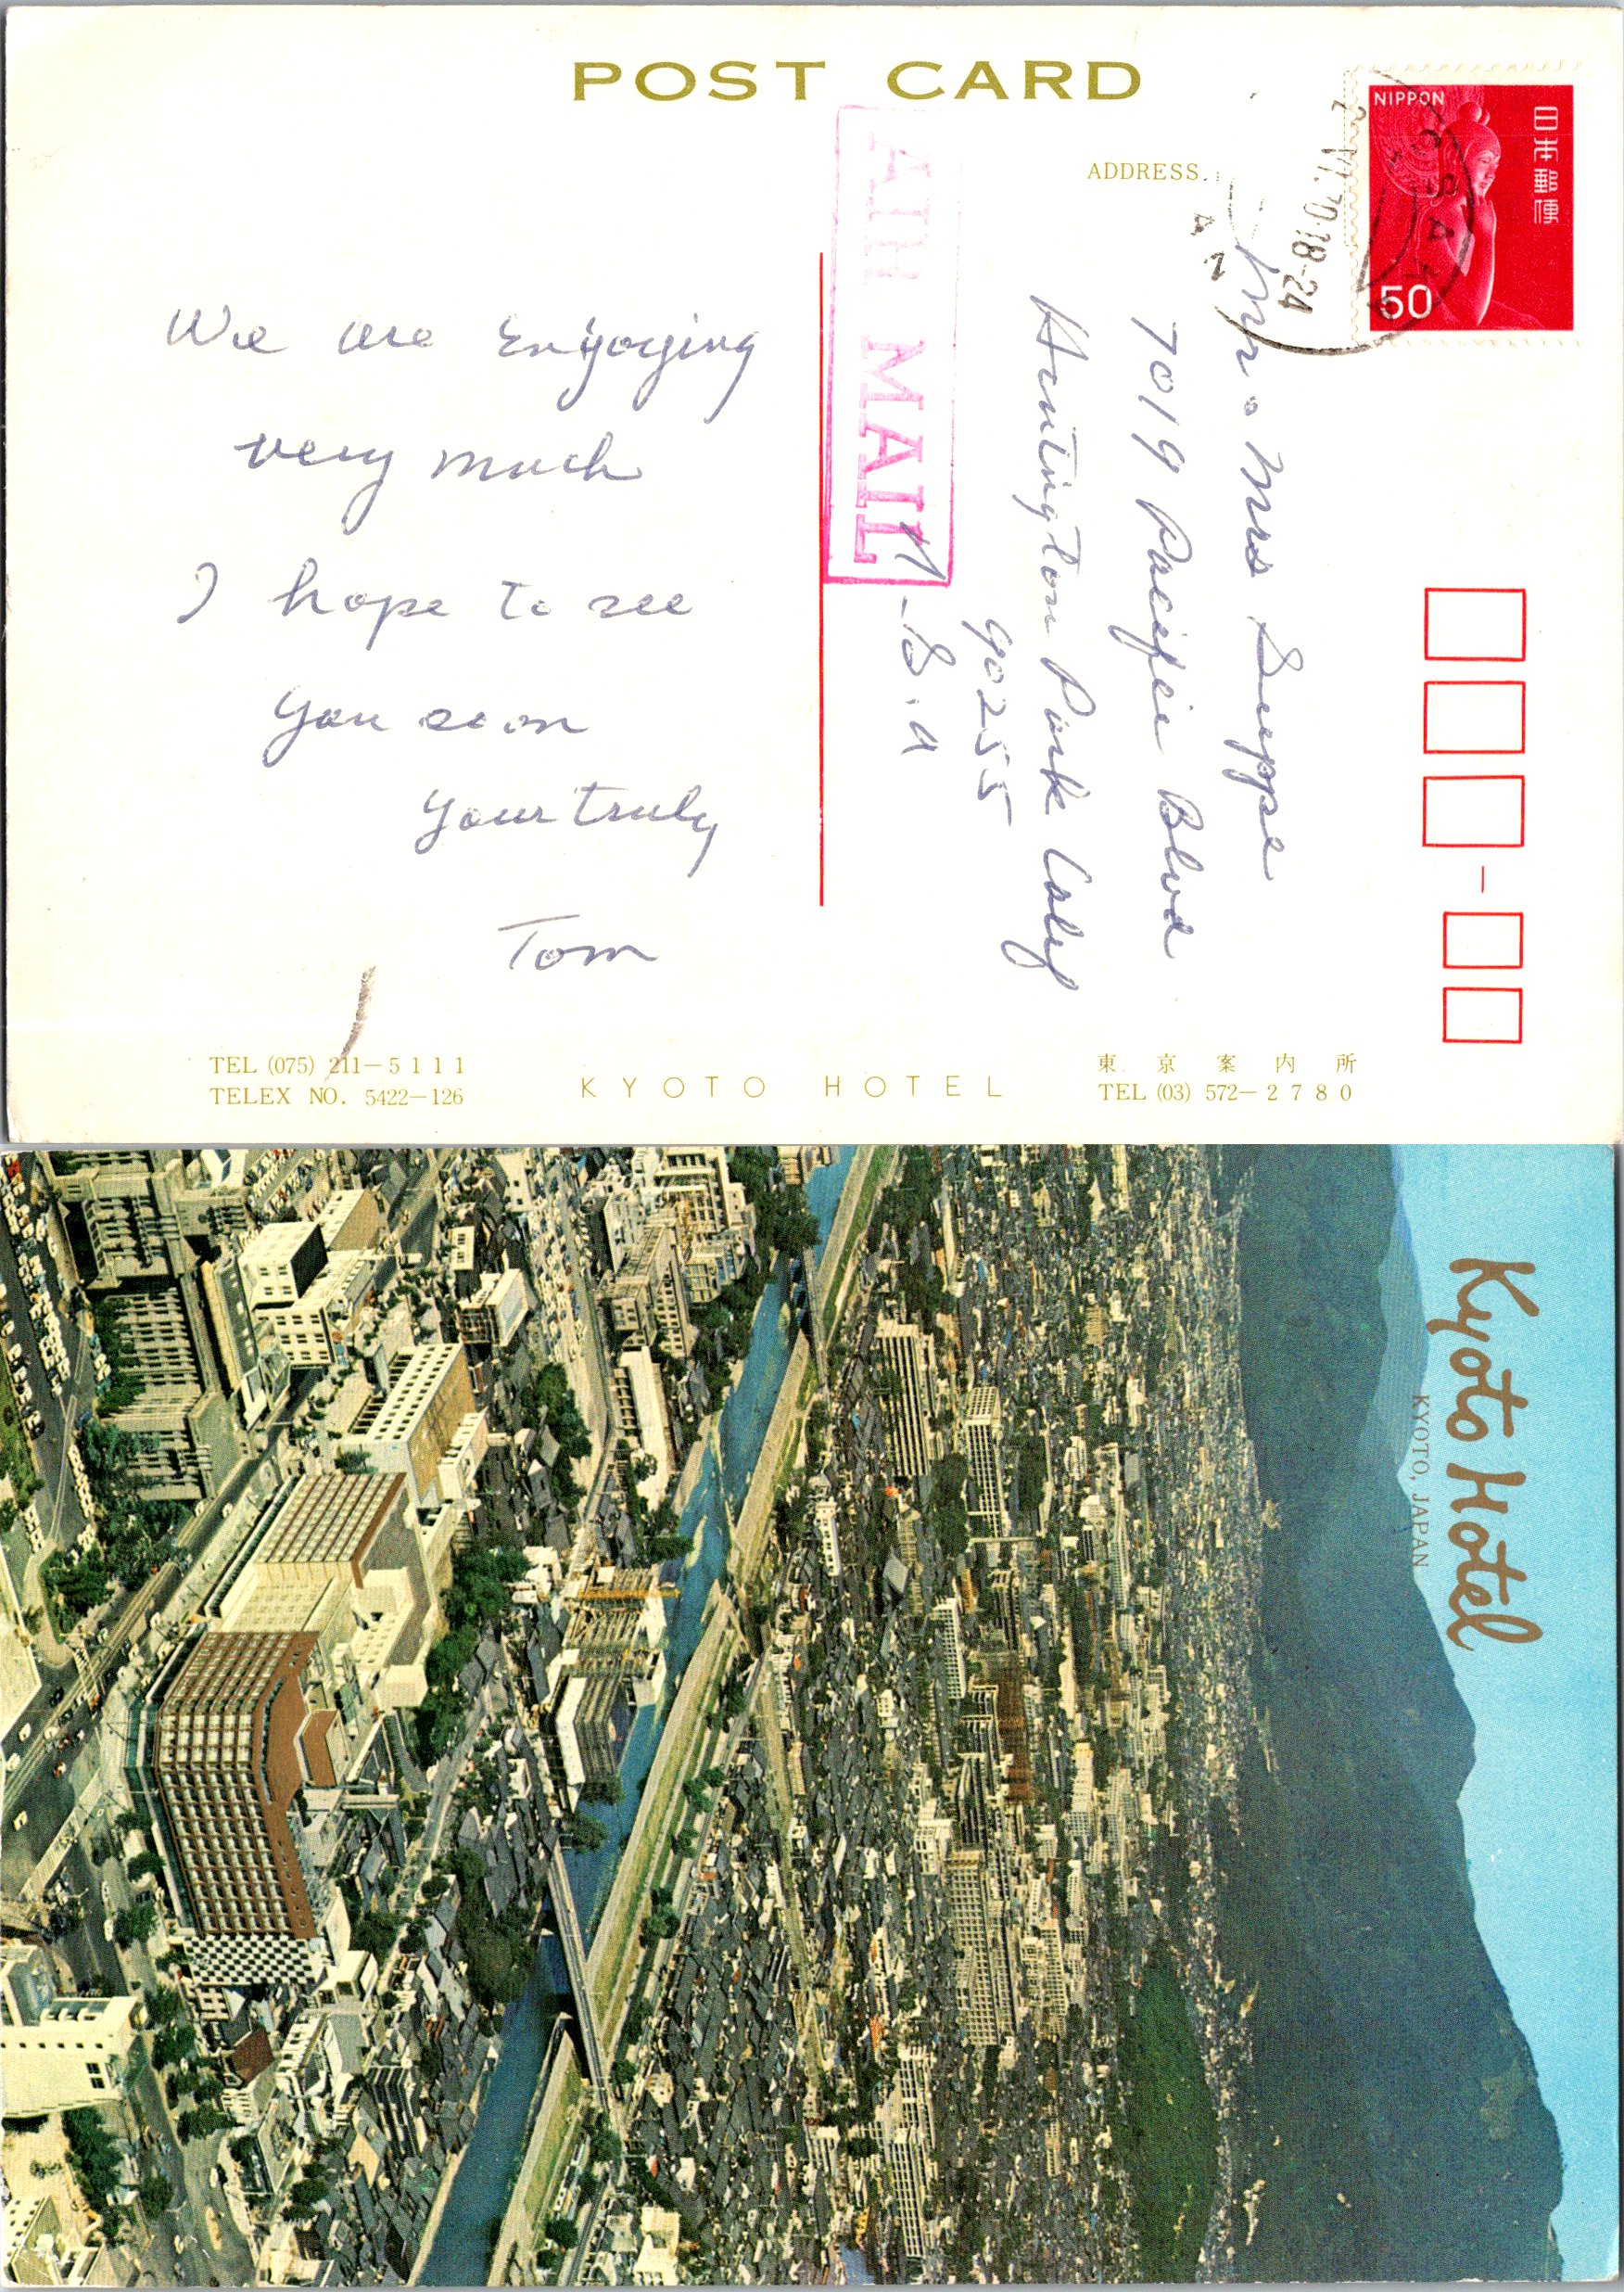 POST CARD
ADDRESS
NIPPON
日本郵便
50
OSAKA
VI.70.18-24
AIR MAIL
We are Enyoying
very much
I hope to see
you soon
your truly
Tom
Mr. Mrs Suppe
7019 Pacific Blvd
Huntington Park Calif
90255
U.S.A
TEL (075) 211-5111
TELEX NO. 5422-126
KYOTO HOTEL
東京案内所
TEL (03) 572-2780
Kyoto Hotel
KYOTO, JAPAN